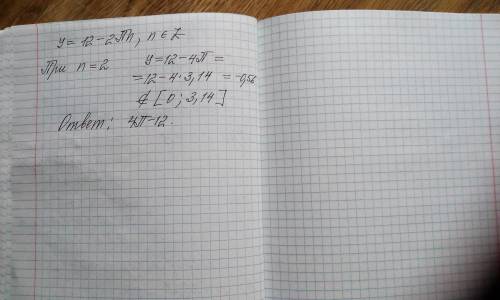 y = 12 - 2πn, n ∈ Z
При n = 2 y = 12 - 4π =
= 12 - 4·3,14 = -0,56
∉ [0; 3,14]
Ответ: 4π-12.